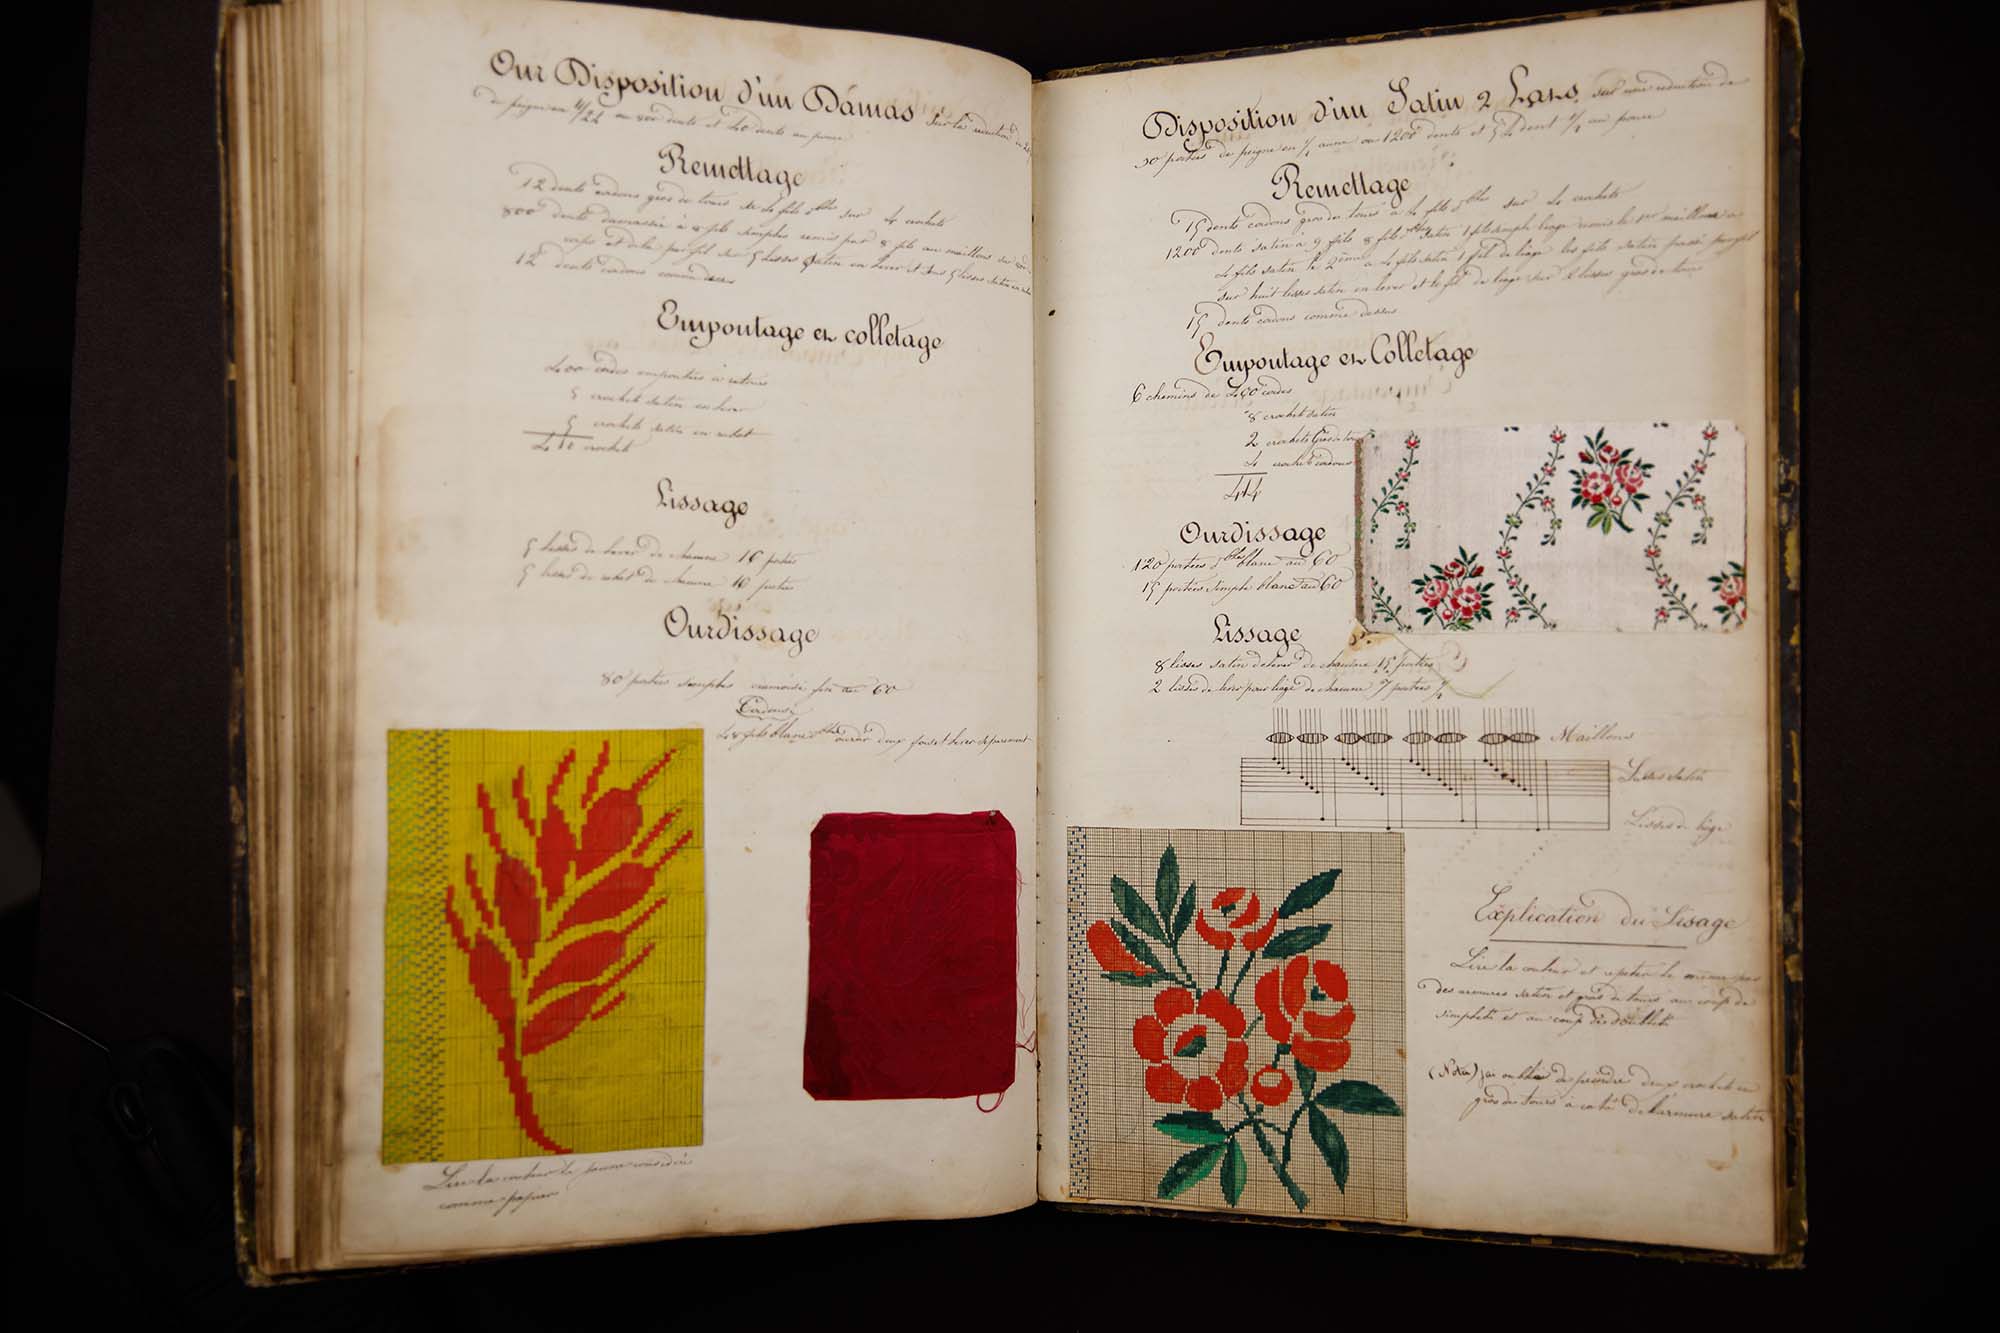 Our Disposition d'un Damas sur la réduction de
de peigne en 11/24 ou 800 dents et 40 dents au pouce
Remettage
12 dents cordons gros de tours à 4 fils dbles sur 4 crochets
800 dents damassée à 8 fils simples remis par 8 fils au maillons sur
corps et de la par fil sur 5 Lisses Satin en lever et sur 5 lisses satin en
12 dents cordons comme dessus
Empoutage et colletage
400 cordes empoutées à retour
5 crochets satin en lever
5 crochets satin en rabat
410 crochets
Lissage
5 lisses de lever de chacune 16 portées
5 lisses de rabat de chacune 16 portées
Ourdissage
80 portées simples cramoisi fin au 60
Cordons
48 fils blanc dbles ourdir deux fois et lever séparement
Lire la couleur le jaune considéré
comme papier
Disposition d'un Satin 2 Lats sur une réduction de
30 portées de peigne en 1/2 aune ou 1200 dents et dent 1/2 au pouce
Remettage
15 dents cordons gros de tours à 4 fils dbles sur 4 crochets
1200 dents satin à 9 fils 8 fils dbles satin 1 fil simple liage remis le 1er maillons à
4 fils satin le 2ème à 4 fils satin 1 fil de liage les fils satin passé par fil
sur huit lisses satin en lever et le fil de liage sur 2 lisses gros de tours
15 dents cordons comme dessus
Empoutage et Colletage
6 chemins de 400 cordes
8 crochets satin
2 crochets Gros de tours
4 crochets cordons
414
Ourdissage
120 portées dbles blanc au 60
15 portées simple blanc au 60
Lissage
8 lisses satin de lever de chacune 15 portées
2 lisses de lever pour liage de chacune 7 portées 1/2
Maillons
Lisses satin
Lisses de liage
Explication du Lisage
Lire la couleur et repeter le même par
des armures satin et gros de tours au coup de
simpleté et au coup de doubleté
(Nota) j'ai oublié de peindre deux crochets en
gros de tours à coté de l'armure satin